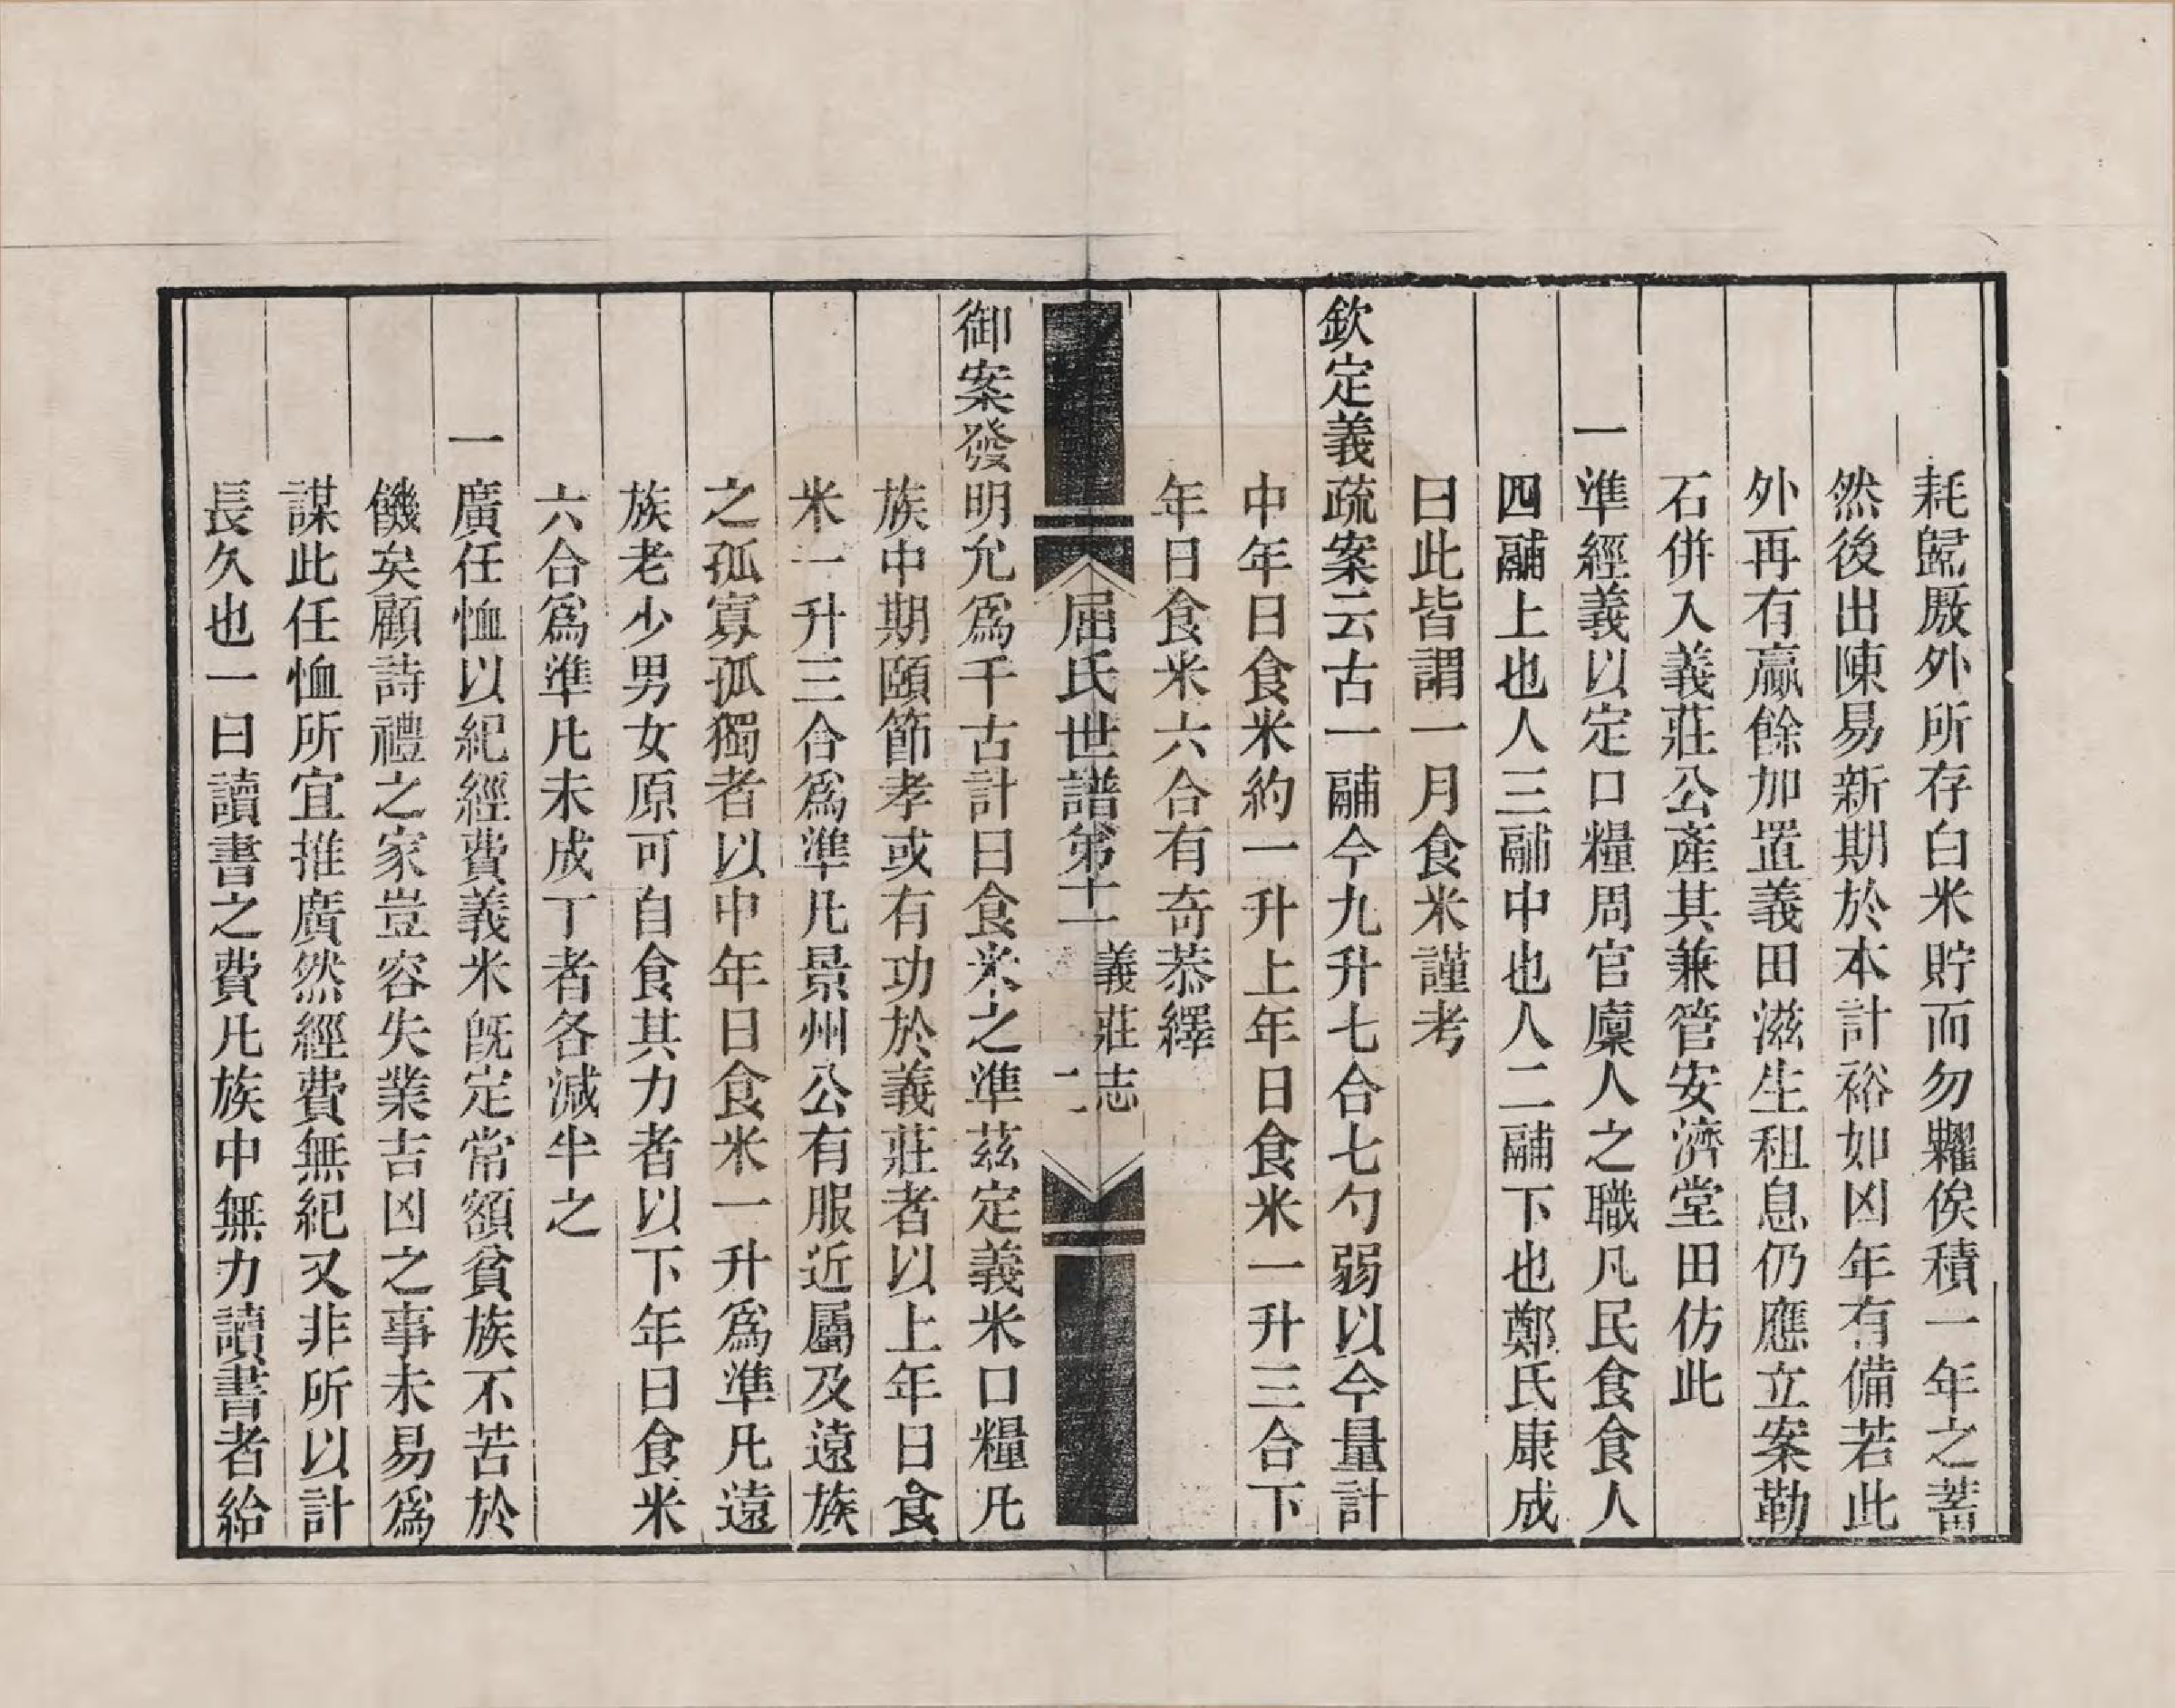 耗歸厫外所存白米貯而勿糶俟積一年之蓄
然後出陳易新期於本計裕如凶年有備若此
外再有贏餘加置義田滋生租息仍應立案勒
石併入義莊公產其兼管安濟堂田仿此
一準經義以定口糧周官廩人之職凡民食食人
四鬴上也人三鬴中也人二鬴下也鄭氏康成
曰此皆謂一月食米謹考
欽定義疏案云古一鬴今九升七合七勺弱以今量計
中年日食米約一升上年日食米一升三合下
年日食米六合有奇恭繹
屈氏世譜第十一 義莊志 二
御案發明允爲千古計日食米之準茲定義米口糧凡
族中期頤節孝或有功於義莊者以上年日食
米一升三合爲準凡景州公有服近屬及遠族
之孤寡孤獨者以中年日食米一升爲準凡遠
族老少男女原可自食其力者以下年日食米
六合爲準凡未成丁者各減半之
一廣任恤以紀經費義米旣定常額貧族不苦於
饑矣顧詩禮之家豈容失業吉凶之事未易爲
謀此任恤所宜推廣然經費無紀又非所以計
長久也一曰讀書之費凡族中無力讀書者給